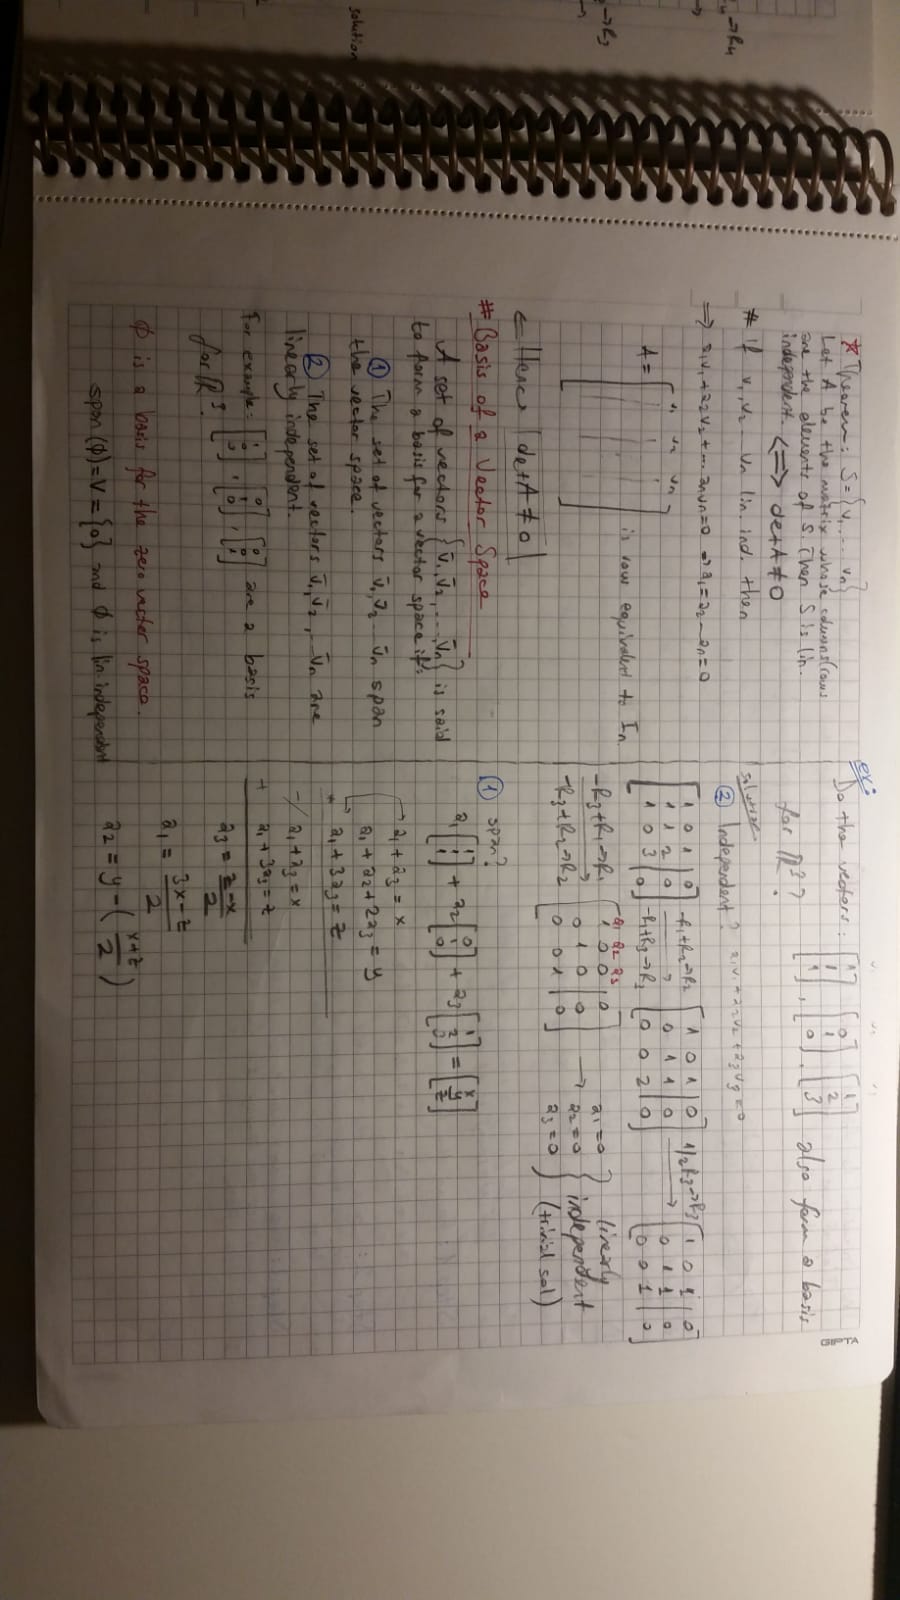 * Theorem: S={v₁,... vₙ}
Let A be the matrix whose columns/rows
are the elements of S. Then S is lin.
independent. <=> detA≠0
# if v₁,v₂...vₙ lin. ind. then
=> a₁v₁+a₂v₂+... aₙvₙ=0 → a₁=a₂...aₙ=0
v₁ v₂ vₙ
A = [ ] is row equivalent to Iₙ.
← Hence detA≠0
# Basis of a Vector Space
A set of vectors {v̄₁,v̄₂,...,v̄ₙ} is said
to form a basis for a vector space if:
① The set of vectors v̄₁,v̄₂...v̄ₙ span
the vector space.
② The set of vectors v̄₁,v̄₂,...v̄ₙ are
linearly independent.
For example: [1 0 0], [0 1 0], [0 0 1] are a basis
for ℝ³.
∅ is a basis for the zero vector space.
span(∅)=V={0} and ∅ is lin. independent
ex:
v₁ v₂ v₃
Do the vectors: [1 1 1], [0 1 0], [1 2 3] also form a basis
for ℝ³?
solution
② Independent? a₁v₁+a₂v₂+a₃v₃=0
[1 0 1 | 0] -R₁+R₂→R₂ [1 0 1 | 0] 1/2R₃→R₃ [1 0 1 | 0]
[1 1 2 | 0] [0 1 1 | 0] [0 1 1 | 0]
[1 0 3 | 0] -R₁+R₃→R₃ [0 0 2 | 0] [0 0 1 | 0]
a₁ a₂ a₃
-R₃+R₁→R₁ [1 0 0 | 0] a₁=0 linearly
[0 1 0 | 0] → a₂=0 independent
-R₃+R₂→R₂ [0 0 1 | 0] a₃=0 (trivial sol)
① span?
a₁[1 1 1] + a₂[0 1 0] + a₃[1 2 3] = [x y z]
a₁+a₃=x
a₁+a₂+2a₃=y
+ a₁+3a₃=z
-/ a₁+a₃=x
+ a₁+3a₃=z
a₃ = (z-x)/2
a₁ = (3x-z)/2
a₂ = y-((x+z)/2)
→R₄
→R₃
solution